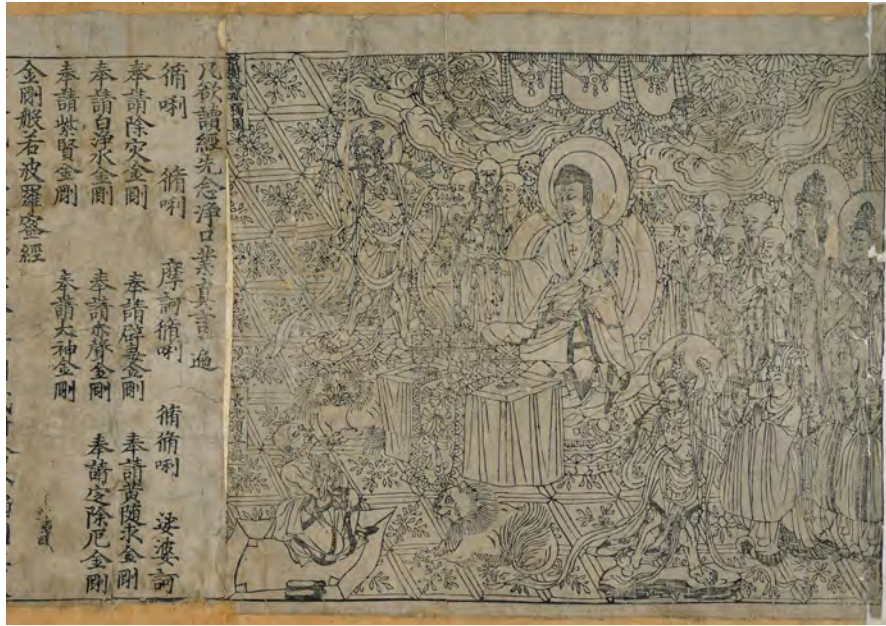 祇樹給孤獨園
長老須菩提
凡欲讀經先念淨口業真言一遍
脩唎 脩唎 摩訶脩唎 脩脩唎 娑婆訶
奉請除灾金剛 奉請辟毒金剛 奉請黃隨求金剛
奉請白淨水金剛 奉請赤聲金剛 奉請定除厄金剛
奉請紫賢金剛 奉請大神金剛
金剛般若波羅蜜經